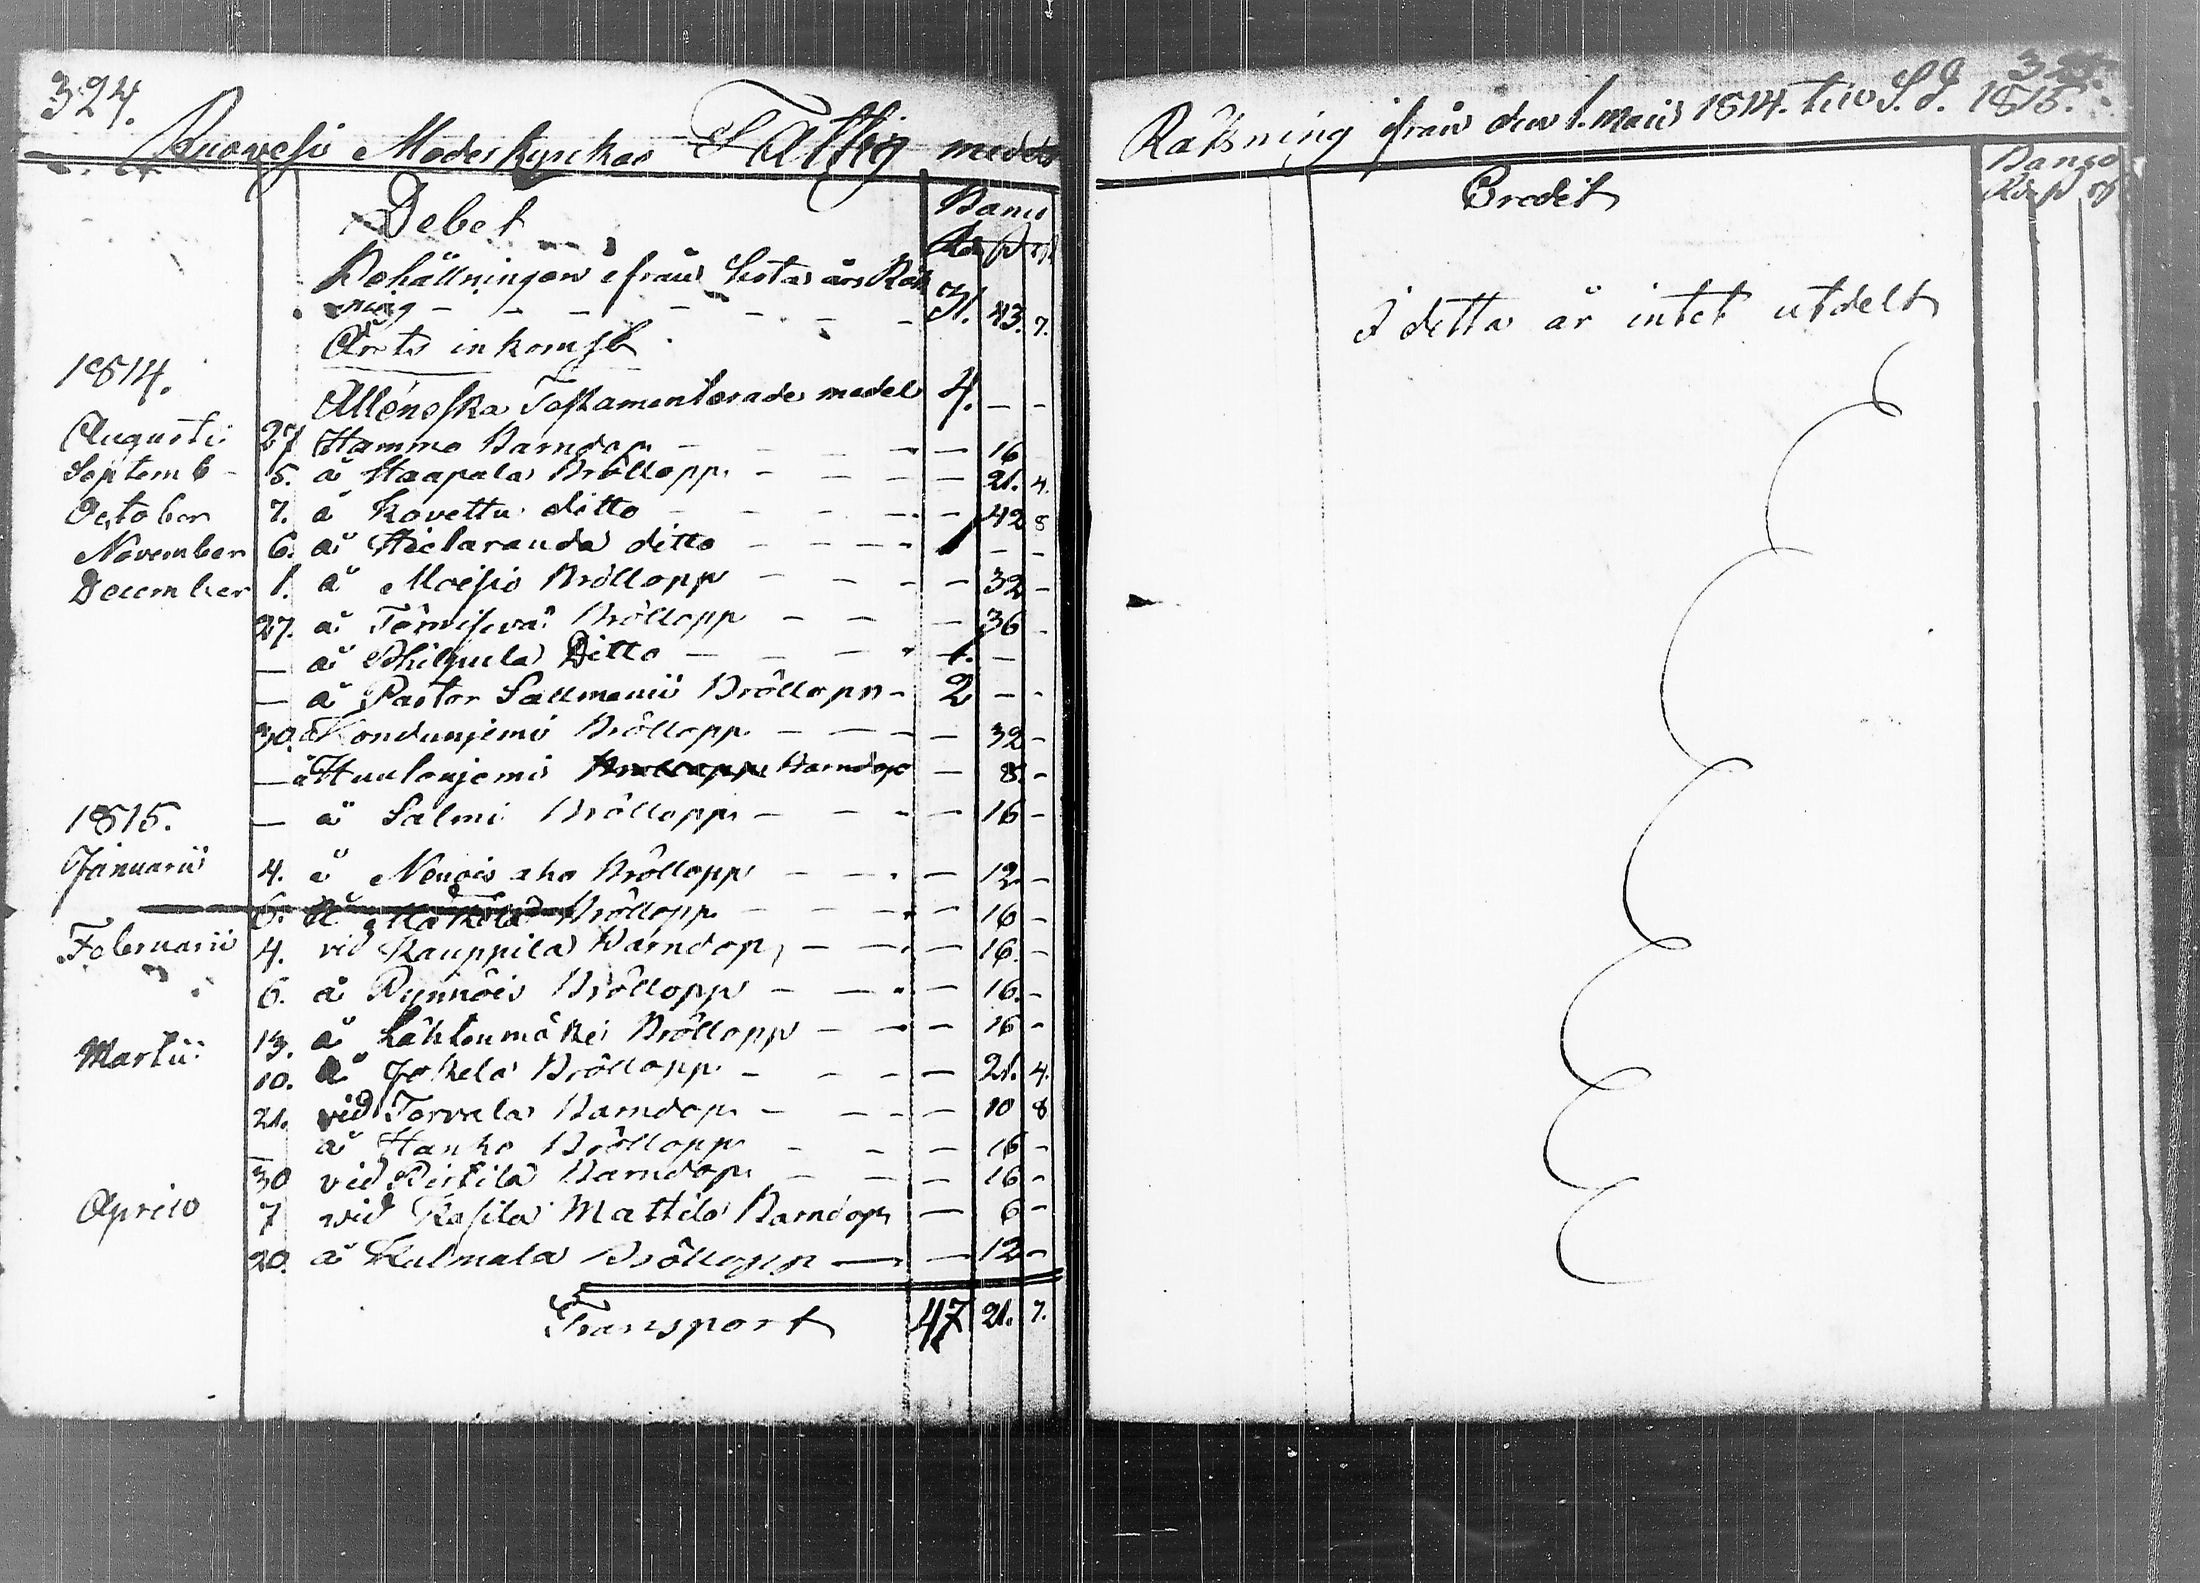 324.
Ruovesi Moderkyrkas Fattig medels
Debet Banco
Rd ß rf
Behållningen ifrån sista års Räk
ning - - - - - - - 31. 43. 7.
Årets inkomst
1814.
Alléneska Testamenterade medel 4. - -
Augusti 27 Hammo Barndop - - - - 16
Septemb - 5. å Haapala Bröllopp - - - - - 21. 4.
October 7. å Kovettu ditto - - - - - 42 8
November 6. å Hietaranda ditto - - - - 1 - -
December 1. å Moisio Bröllopp - - - - 32 -
27. å Törnisevä Bröllopp - - - 36 -
- å Philpula Ditto - - - 1. -
- å Pastor Sallmenii Bröllopp - 2 - -
30. å Kondunjemi Bröllopp - - - - 32 -
- å Huulonjemi Bröllopp Barndop - 8. -
1815.
- å Salmi Bröllopp - - - - 16 -
Januarii 4. å Nenois aho Bröllopp - - - - 12 -
6. å Mäkelä Bröllopp - - - - 16 -
Februarii 4. vid Kauppila Barndop, - - - 16. -
6. å Rynnöis Bröllopp - - - - 16. -
13. å Lähtenmäki Bröllopp - - - 16 -
Martii 10. å Jokela Bröllopp - - - - 21. 4.
21. vid Torvala Barndop - - - - 10 8
- å Hanho Bröllopp - - - 16 -
30 vid Pirtila Barndop - - - 16 -
Aprill 7 vid Kosila Mattila Barndop - 6 -
20. å Kulmala Bröllopp - - 12 -
Transport 47 21. 7.
325.
Räkning ifrån den 1. Maii 1814. till S. D. 1815.
Credit Banco
Rd ß rf
I detta år intet utdelt